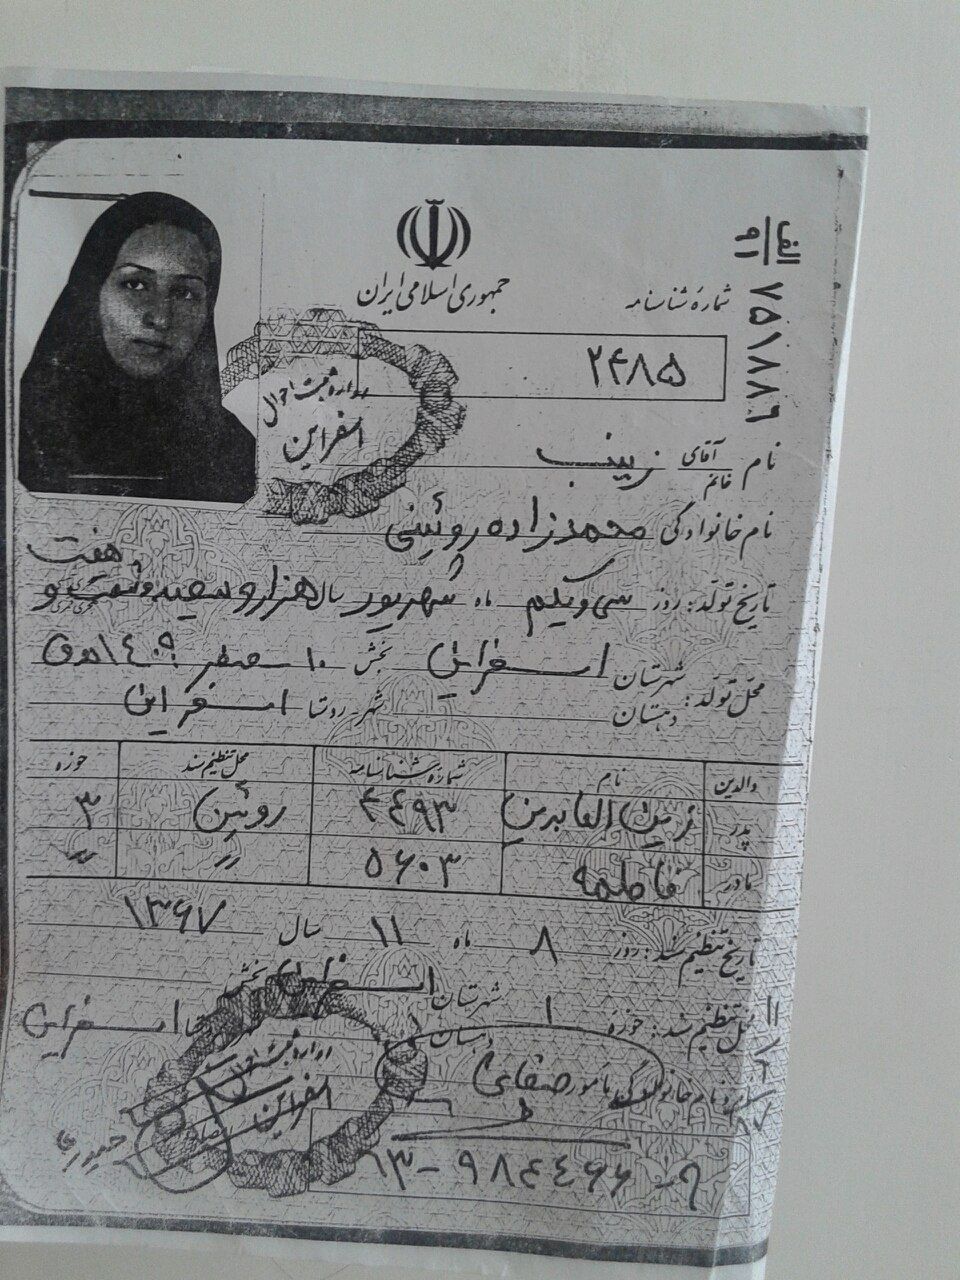 جمهوری اسلامی ایران
شمارهٔ شناسنامه
۲۴۸۵
الف/۹۱ ۷۵۱۸۸۶
ادارهٔ ثبت احوال
اسفراین
نام آقای خانم زینب
نام خانوادگی محمدزاده روئینی
تاریخ تولد: روز سی ویکم ماه شهریور سال هزارو سیصد و شصت و هفت
محل تولد: شهرستان اسفراین بخش ۱۰ صفر ۱۴۰۹ ه‍ ق
دهستان شهر - روستا اسفراین
والدین نام شمارهٔ شناسنامه محل تنظیم سند حوزه
پدر زین العابدین ۴۴۹۳ روئین ۳
مادر فاطمه ۵۶۰۳ 〃 〃
تاریخ تنظیم سند: روز ۸ ماه ۱۱ سال ۱۳۶۷
محل تنظیم سند: حوزه ۱ شهرستان اسفراین بخش
دهستان اسفراین
نام و نام خانوادگی مامور صفای
ادارهٔ ثبت احوال
اسفراین
حیدری